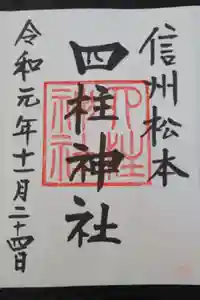 信州松本
四柱神社
令和元年十一月二十四日
四柱神社